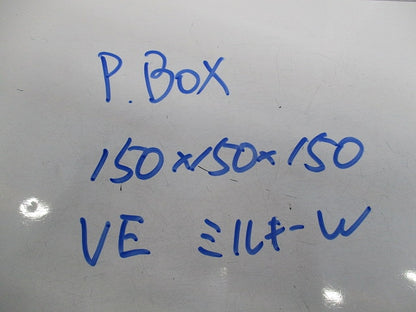 P.BOX
150×150×150
VE ミルキーW